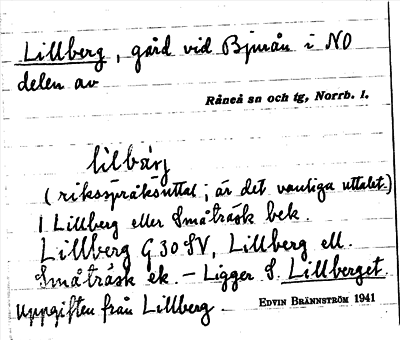 Lillberg, gård vid Bjurån i NO
delen av
Råneå sn och tg, Norrb. l.
lilbärj
(riksspråksuttal; är det vanliga uttalet.)
1 Lillberg eller Småträsk bek.
Lillberg G 30 SV, Lillberg ell.
Småträsk ek. – Ligger S. Lillberget.
Uppgiften från Lillberg.
EDVIN BRÄNNSTRÖM 1941